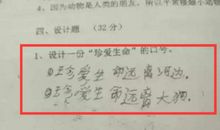 4、因为动物是人类的朋友，所以
四、设计题 (32分)
1、设计一份“珍爱生命”的口号。
珍爱生命远离河边
珍爱生命远离大狗